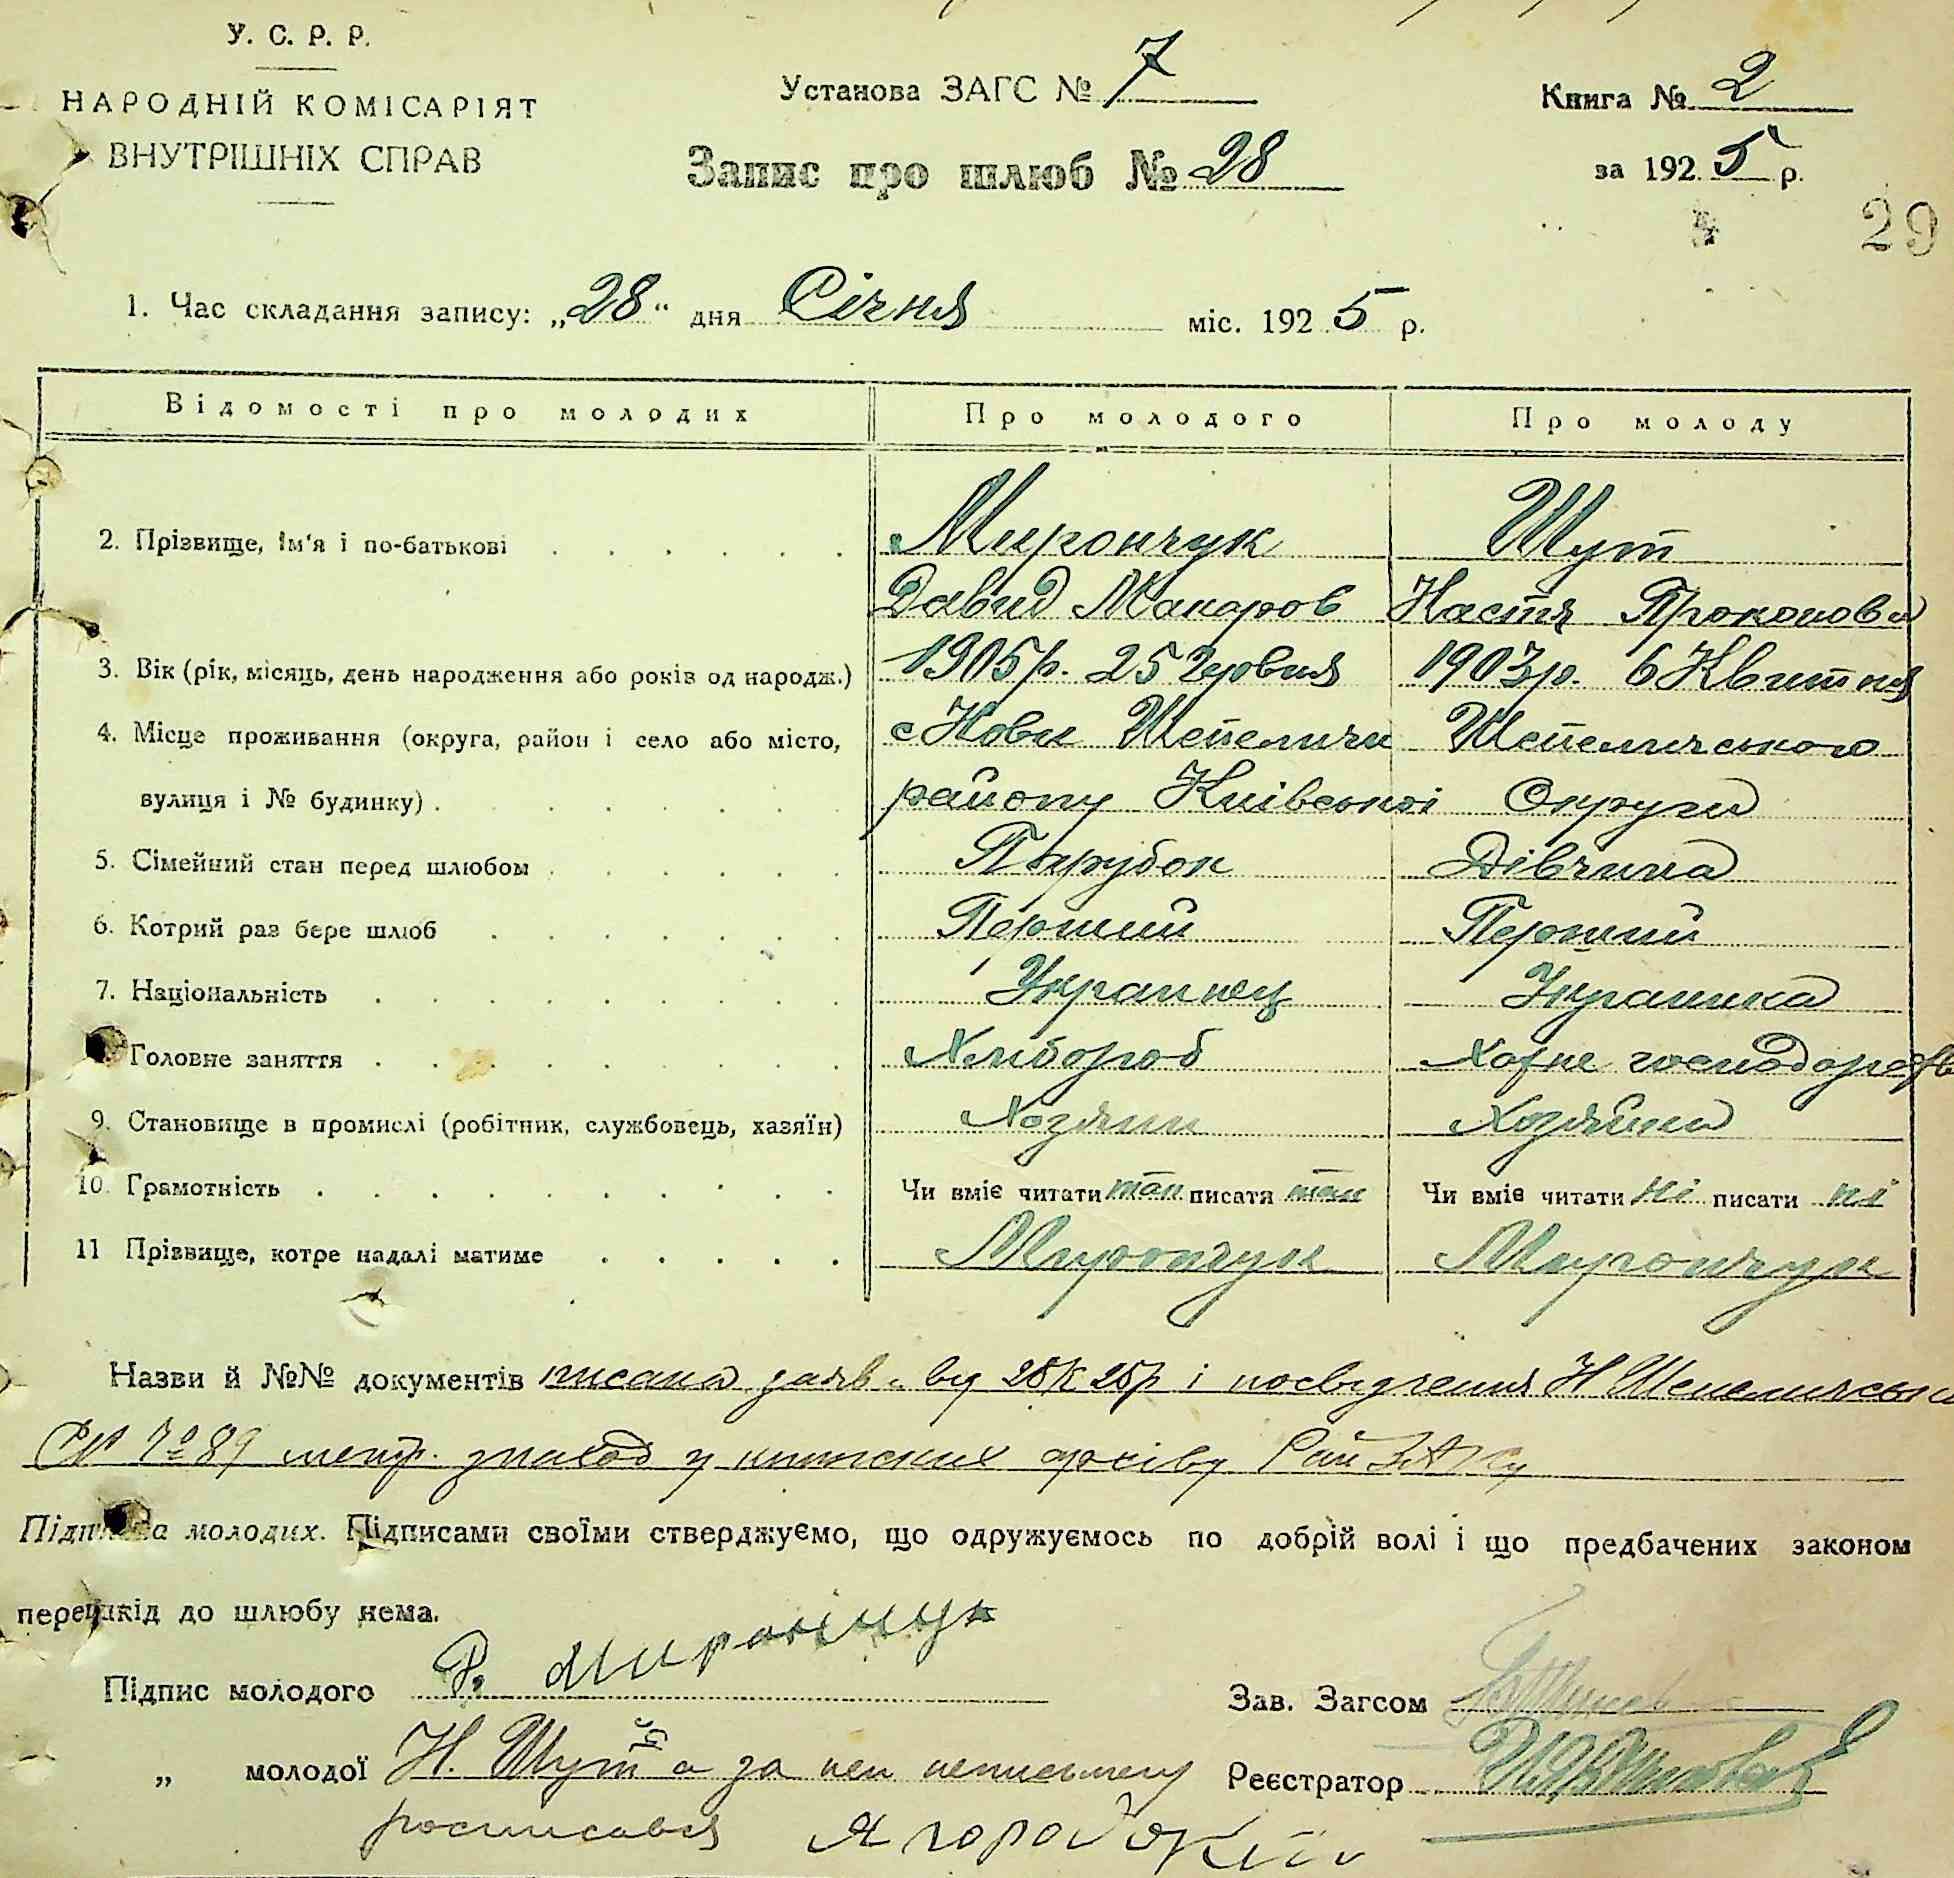 У. С. Р. Р.
НАРОДНІЙ КОМІСАРІЯТ
ВНУТРІШНІХ СПРАВ
Установа ЗАГС № 7
Запис про шлюб № 28
Книга № 2
за 1925 р.
29
1. Час складання запису: „28“ дня Січня міс. 1925 р.
Відомості про молодих Про молодого Про молоду
2. Прізвище, ім'я і по-батькові Мирончук Шут
Давид Макаров Настя Прокопова
3. Вік (рік, місяць, день народження або років од народж.) 1905р. 25 Червня 1903р. 6 Квитня
4. Місце проживання (округа, район і село або місто, с Нови Шепеличи Шепеличського
вулиця і № будинку) району Київської Округи
5. Сімейний стан перед шлюбом Парубок Дівчина
6. Котрий раз бере шлюб Перший Перший
7. Національність Украинец Украинка
Головне заняття Хлибороб Хатне господарств
9. Становище в промислі (робітник, службовець, хазяїн) Хозяин Хозяйка
10. Грамотність Чи вміє читати так писати так Чи вміє читати ні писати ні
11 Прізвище, котре надалі матиме Мирончук Мирончук
Назви й №№ документів писана заяв. від 28/І 25р і посвідчення Н Шепеличської
№ 89 метр. знаход у книжках архіву Рай ЗАГСу
Підписа молодих. Підписами своїми стверджуємо, що одружуємось по добрій волі і що предбачених законом
перешкід до шлюбу нема.
Підпис молодого Мирончук
Зав. Загсом
„ молодої Н. Шут а за неи неписьмену
Реєстратор
росписався Ягородский